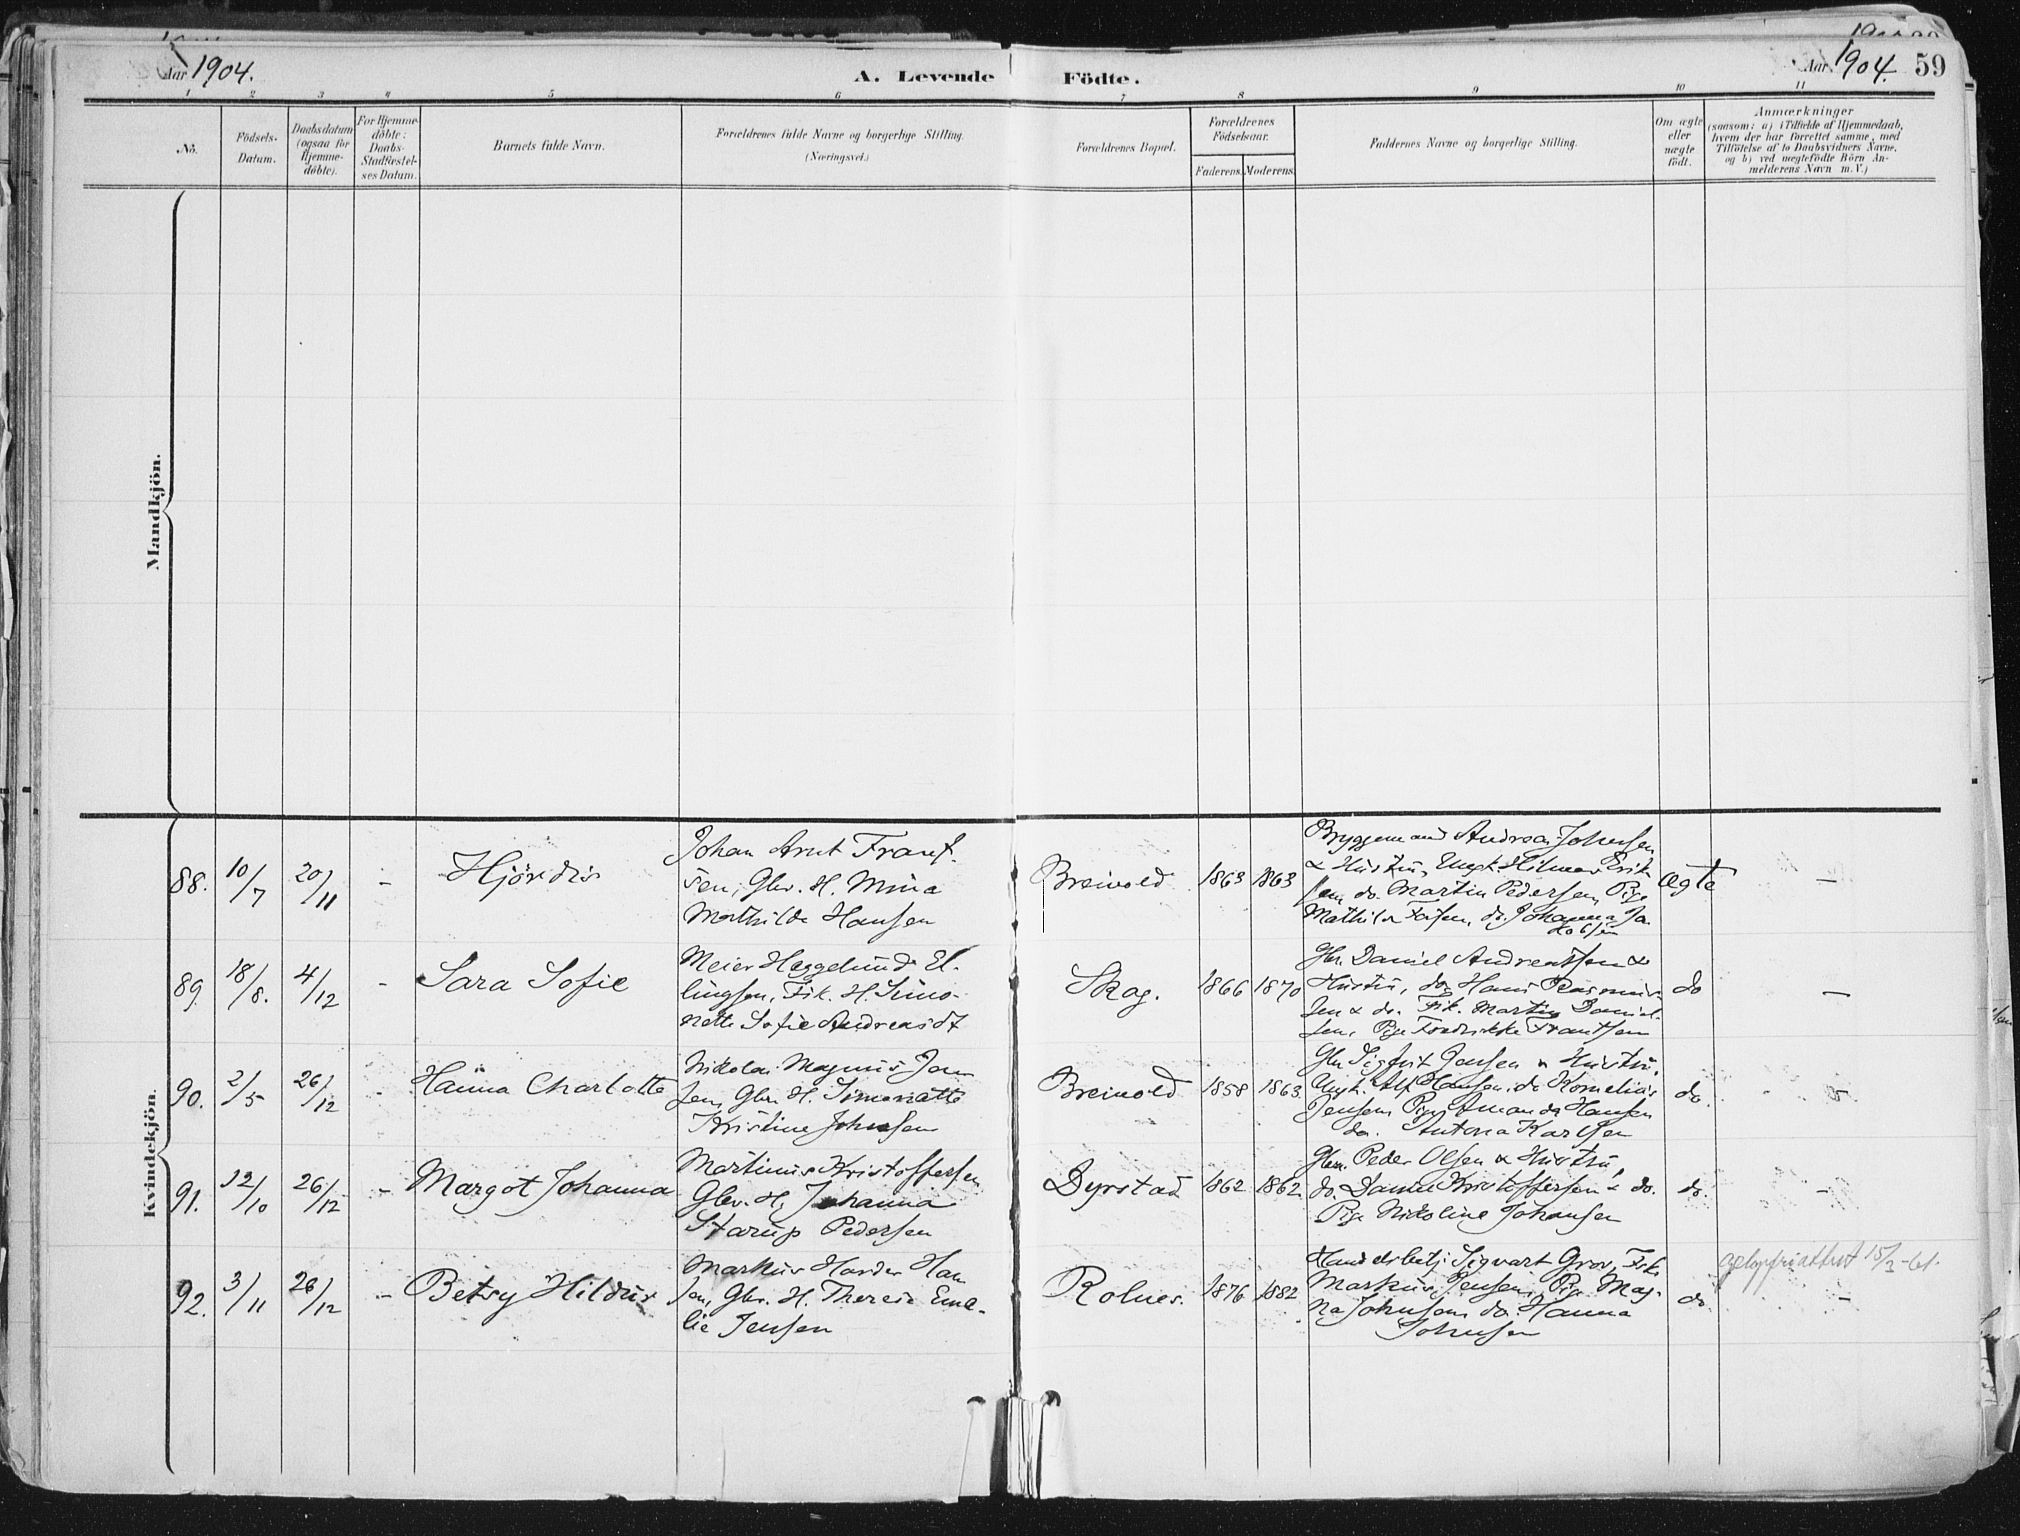 Aar 1904.
A. Levende Födte.
Aar 1904. 59
1 2 3 4 5 6 7 8 9 10 11
No.
Födsels-
Datum.
Daabsdatum
(ogsaa för
Hjemme-
döbte).
For Hjemme-
döbte:
Daabs-
Stadfæstel-
ses Datum.
Barnets fulde Navn.
Forældrenes fulde Navne og borgerlige Stilling.
(Næringsvei.)
Forældrenes Bopæl.
Forældrenes
Födselsaar.
Faderens. Moderens.
Faddernes Navne og borgerlige Stilling.
Om ægte
eller
uægte
födt.
Anmærkninger
(saasom: a) i Tilfælde af Hjemmedaab,
hvem der har forrettet samme, med
Tilföielse af to Daabsvidners Navne,
og b) ved uegtefödte Börn An-
melderens Navn m. V.)
Mandkjön.
Kvindekjön.
88. 10/7 20/11 - Hjördis
Johan Arnt Frants-
sen, Gbr. H. Mina
Mathilde Hansen
Breivold 1863 1863
Bryggemand Andreas Johnsen
& Hustru, Ungk. Hilmar Erik
sen, do. Martin Pedersen, Pige
Mathilde
do. Johanna Ja
kobsen
Ægte —
89. 18/8. 4/12 - Sara Sofie
Meier Heggelund El-
lingsen, Fisk. H. Simo-
nette Sofie Andreasdt
Skog. 1866 1870
Gbr. Daniel Andreassen &
Hustru, do. Hans Rasmus-
sen & do. Fisk. Martin Daniel-
sen, Pige Fredrikke Frantsen
do —
90. 2/5 26/12 - Hanna Charlotte
Nikolai Magnus Jen
sen, Gbr. H. Simonette
Kristine Johnsen
Breivold 1858 1863.
Gbr. Sigfrit Jensen & Hustru,
Ungk. Alf Hansen, do Kornelius
Jensen, Pige Amanda Hansen
do. Antona Karlsen
do.
91. 12/10 26/12 - Margot Johanna
Martinus Kristoffersen
Gbr. H. Johanna
Starup Pedersen
Dyrstad 1862 1862
Gbr. Peder Olsen & Hustru,
do. Daniel Kristoffersen & do.
Pige Nikoline Johansen
do. -
92. 3/11 26/12 - Betsy Hildur
Markus Harder Han
sen, Gbr. H. Therese Emi-
lie Jensen
Rolnes. 1876 1882
Handelsbetj. Sigvart Grov, Fisk.
Markus Jensen, Pige Mag-
na Johnsen, do. Hanna
Johnsen
do 15/2-61.
-